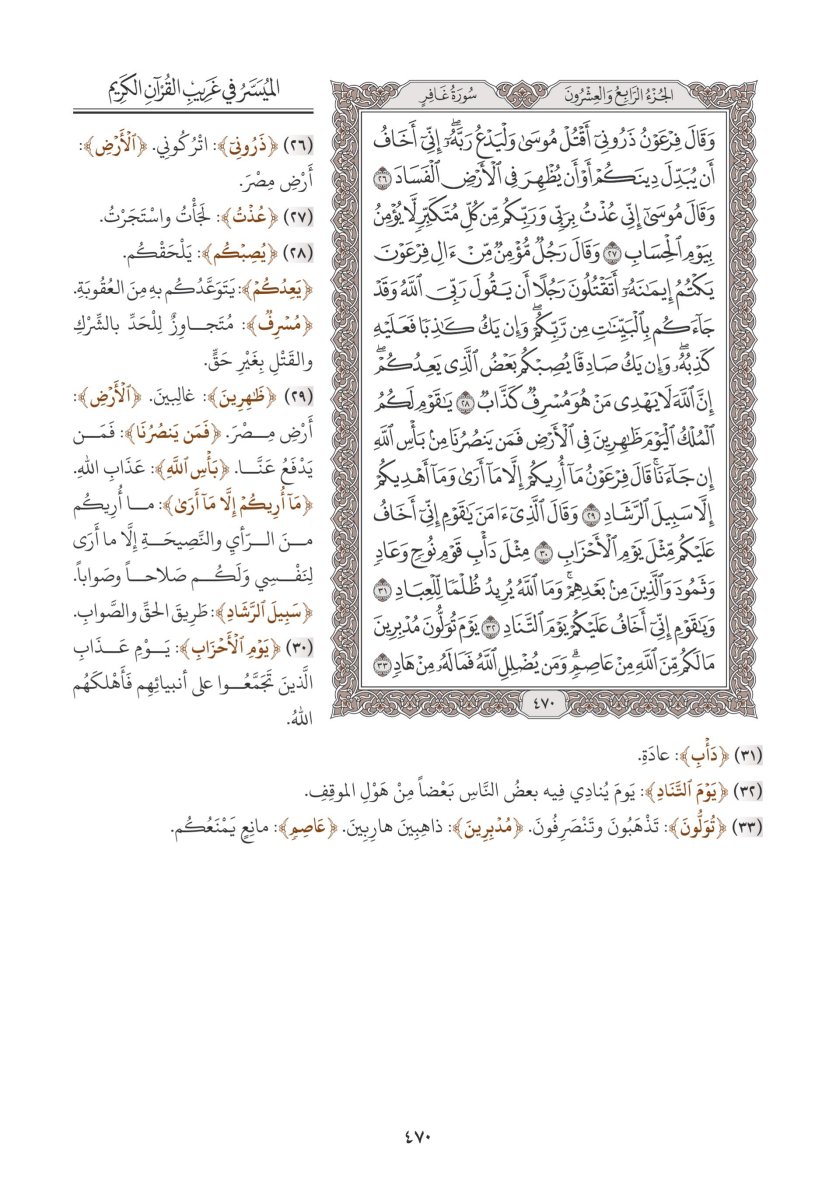 الميسر في غريب القرآن الكريم
الجزء الرابع والعشرون
سورة غافر
وَقَالَ فِرْعَوْنُ ذَرُونِىٓ أَقْتُلْ مُوسَىٰ وَلْيَدْعُ رَبَّهُۥٓۖ إِنِّىٓ أَخَافُ
أَن يُبَدِّلَ دِينَكُمْ أَوْ أَن يُظْهِرَ فِى ٱلْأَرْضِ ٱلْفَسَادَ ٢٦
وَقَالَ مُوسَىٰٓ إِنِّى عُذْتُ بِرَبِّى وَرَبِّكُم مِّن كُلِّ مُتَكَبِّرٍ لَّا يُؤْمِنُ
بِيَوْمِ ٱلْحِسَابِ ٢٧ وَقَالَ رَجُلٌ مُّؤْمِنٌ مِّنْ ءَالِ فِرْعَوْنَ
يَكْتُمُ إِيمَٰنَهُۥٓ أَتَقْتُلُونَ رَجُلًا أَن يَقُولَ رَبِّىَ ٱللَّهُ وَقَدْ
جَآءَكُم بِٱلْبَيِّنَٰتِ مِن رَّبِّكُمْۖ وَإِن يَكُ كَٰذِبًا فَعَلَيْهِ
كَذِبُهُۥۖ وَإِن يَكُ صَادِقًا يُصِبْكُم بَعْضُ ٱلَّذِى يَعِدُكُمْۖ
إِنَّ ٱللَّهَ لَا يَهْدِى مَنْ هُوَ مُسْرِفٌ كَذَّابٌ ٢٨ يَٰقَوْمِ لَكُمُ
ٱلْمُلْكُ ٱلْيَوْمَ ظَٰهِرِينَ فِى ٱلْأَرْضِ فَمَن يَنصُرُنَا مِنۢ بَأْسِ ٱللَّهِ
إِن جَآءَنَاۚ قَالَ فِرْعَوْنُ مَآ أُرِيكُمْ إِلَّا مَآ أَرَىٰ وَمَآ أَهْدِيكُمْ
إِلَّا سَبِيلَ ٱلرَّشَادِ ٢٩ وَقَالَ ٱلَّذِىٓ ءَامَنَ يَٰقَوْمِ إِنِّىٓ أَخَافُ
عَلَيْكُم مِّثْلَ يَوْمِ ٱلْأَحْزَابِ ٣٠ مِثْلَ دَأْبِ قَوْمِ نُوحٍ وَعَادٍ
وَثَمُودَ وَٱلَّذِينَ مِنۢ بَعْدِهِمْۚ وَمَا ٱللَّهُ يُرِيدُ ظُلْمًا لِّلْعِبَادِ ٣١
وَيَٰقَوْمِ إِنِّىٓ أَخَافُ عَلَيْكُمْ يَوْمَ ٱلتَّنَادِ ٣٢ يَوْمَ تُوَلُّونَ مُدْبِرِينَ
مَا لَكُم مِّنَ ٱللَّهِ مِنْ عَاصِمٍۗ وَمَن يُضْلِلِ ٱللَّهُ فَمَا لَهُۥ مِنْ هَادٍ ٣٣
٤٧٠
(٢٦) ﴿ذَرُونِىٓ﴾: اتْرُكُونِي. ﴿ٱلْأَرْضِ﴾:
أَرْضِ مِصْرَ.
(٢٧) ﴿عُذْتُ﴾: لَجَأْتُ واسْتَجَرْتُ.
(٢٨) ﴿يُصِبْكُم﴾: يَلْحَقْكُم.
﴿يَعِدُكُمْ﴾: يَتَوَعَّدُكُم بِهِ مِنَ العُقُوبَةِ.
﴿مُسْرِفٌ﴾: مُتَجاوِزٌ لِلْحَدِّ بالشِّرْكِ
والقَتْلِ بِغَيْرِ حَقٍّ.
(٢٩) ﴿ظَٰهِرِينَ﴾: غالِبينَ. ﴿ٱلْأَرْضِ﴾:
أَرْضِ مِصْرَ. ﴿فَمَن يَنصُرُنَا﴾: فَمَن
يَدْفَعُ عَنَّا. ﴿بَأْسِ ٱللَّهِ﴾: عَذَابِ اللهِ.
﴿مَآ أُرِيكُمْ إِلَّا مَآ أَرَىٰ﴾: ما أُرِيكُم
مِنَ الرَّأيِ والنَّصِيحَةِ إِلَّا ما أَرَى
لِنَفْسِي وَلَكُم صَلاحاً وصَواباً.
﴿سَبِيلَ ٱلرَّشَادِ﴾: طَرِيقَ الحَقِّ والصَّوابِ.
(٣٠) ﴿يَوْمِ ٱلْأَحْزَابِ﴾: يَوْمِ عَذَابِ
الَّذينَ تَجَمَّعُوا على أنبيائِهِم فَأَهْلكَهُم
اللهُ.
(٣١) ﴿دَأْبِ﴾: عادَةِ.
(٣٢) ﴿يَوْمَ ٱلتَّنَادِ﴾: يَومَ يُنادِي فِيه بعضُ النَّاسِ بَعْضاً مِنْ هَوْلِ الموقِفِ.
(٣٣) ﴿تُوَلُّونَ﴾: تَذْهَبُونَ وتَنْصَرِفُونَ. ﴿مُدْبِرِينَ﴾: ذاهِبِينَ هارِبِينَ. ﴿عَاصِمٍ﴾: مانِعٍ يَمْنَعُكُم.
٤٧٠